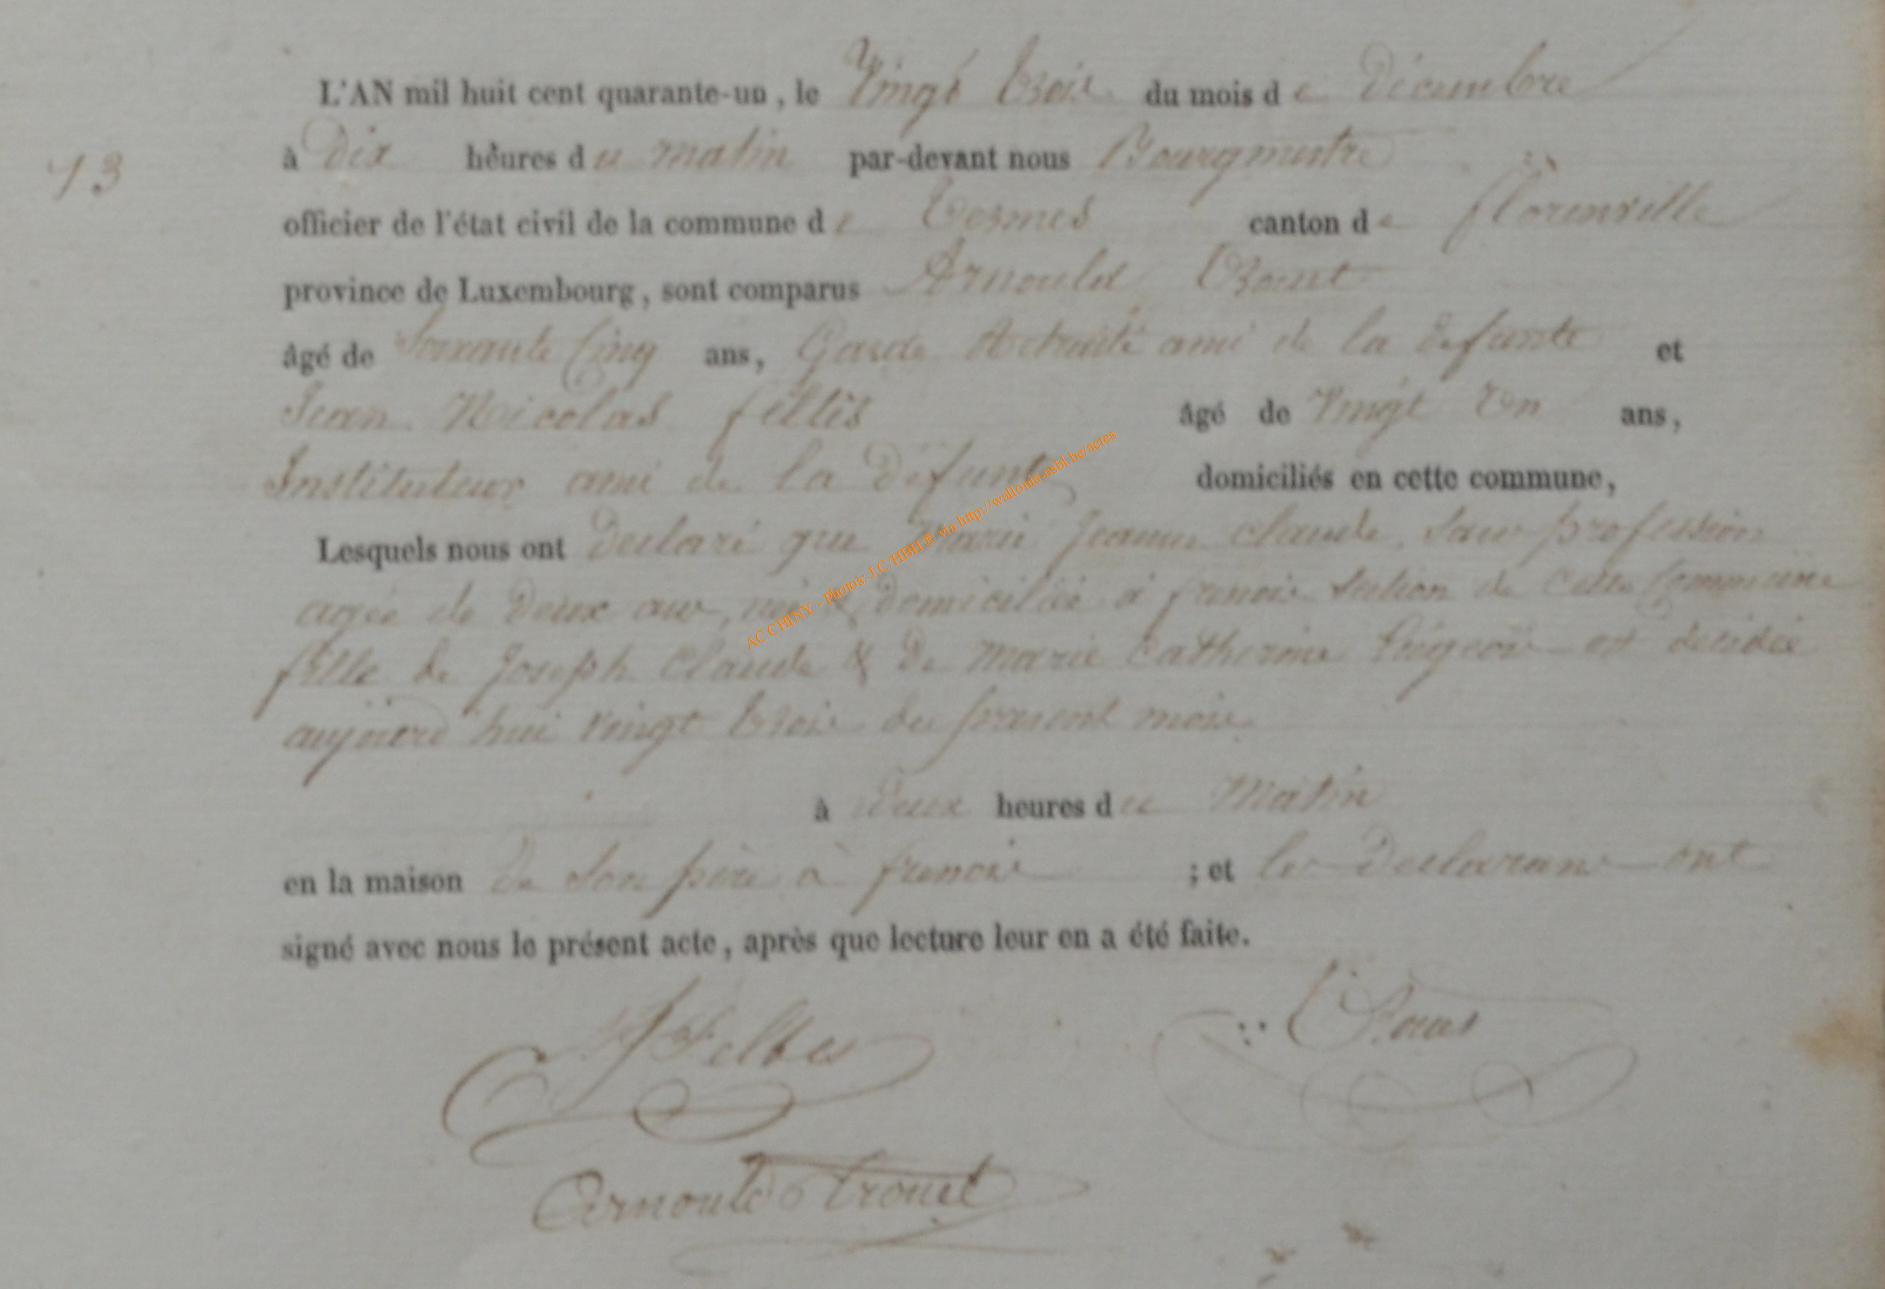 L'AN mil huit cent quarante-un, le Vingt trois du mois de Décembre
13
à Dix heures du matin par-devant nous Bourgmestre
officier de l'état civil de la commune de termes canton de florenville
province de Luxembourg, sont comparus Arnould
âgé de Soixante Cinq ans, Garde Retraité ami de la defunte et
Jean Nicolas âgé de Vingt Un ans,
Instituteur ami de la Défunte domiciliés en cette commune,
Lesquels nous ont Declaré que Marie Jeanne Claude, Sans profession
agée de Deux ans, née & domiciliée à frenois Section de Cette Commune
fille de Joseph Claude & De Marie Catherine est décédée
aujourd'hui vingt trois du present mois
à Deux heures du Matin
en la maison de son père à frenois ; et les Declarans ont
signé avec nous le présent acte, après que lecture leur en a été faite.
Arnould trouet
AC CHINY - Photos J.C HBLR via http://wallonia-asbl.be/actes